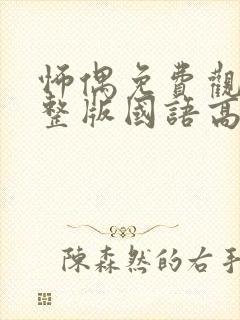 怖偶免費觀
整版國語高
陳森然的右手